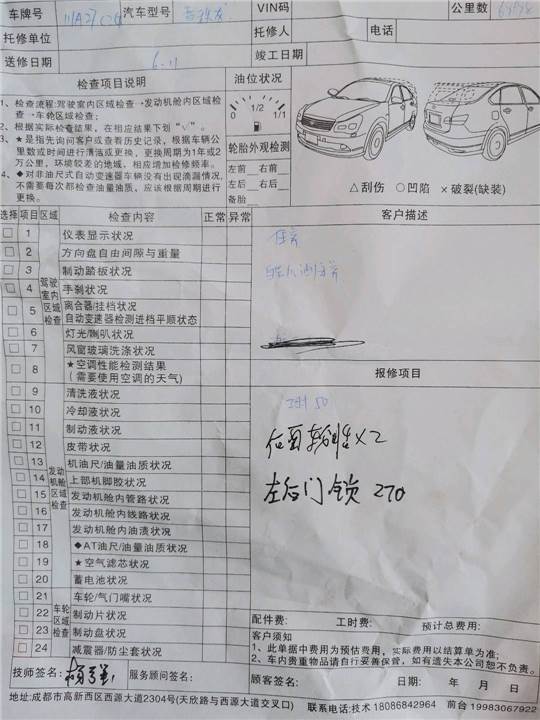 车牌号 汽车型号 VIN码 公里数
托修单位 托修人 电话
送修日期 6.11 竣工日期
检查项目说明
1、检查流程:驾驶室内区域检查→发动机舱内区域检查→车轮区域检查;
2、根据实际检查结果，在相应结果下划“√”。
3、★是指先询问客户或查看历史记录，根据车辆公里数或时间进行清洁或更换，更换周期为1年或2万公里，环境较差的地域，相应增加检修频率。
4、◆对非油尺式自动变速器车辆没有出现滴漏情况，不需要每次都检查油量油质，应该根据周期进行更换。
油位状况
0 1/2 1/1
轮胎外观检测
左前 右前
左后 右后
备胎
△刮伤 ○凹陷 ×破裂(缺装)
选择 项目 区域 检查内容 正常 异常
驾驶室内区域检查
1 仪表显示状况
2 方向盘自由间隙与重量
3 制动踏板状况
4 手刹状况
5 离合器/挂档状况
自动变速器检测进档平顺状态
6 灯光/喇叭状况
7 风窗玻璃洗涤状况
8 ★空调性能检测结果
(需要使用空调的天气)
发动机舱区域检查
9 清洗液状况
10 冷却液状况
11 制动液状况
12 皮带状况
13 机油尺/油量油质状况
14 上部机脚胶状况
15 发动机舱内管路状况
16 发动机舱内线路状况
17 发动机舱内油渍状况
18 ◆AT油尺/油量油质状况
19 ★空气滤芯状况
20 蓄电池状况
车轮区域检查
21 车轮/气门嘴状况
22 制动片状况
23 制动盘状况
24 减震器/防尘套状况
客户描述
报修项目
50
X2
左后门锁 270
配件费: 工时费: 预计总费用:
客户须知
1、此单据中费用为预估费用，实际费用以结算单为准;
2、车内贵重物品请自行妥善保管，如有遗失本公司恕不负责。
技师签名: 服务顾问签名: 顾客签名: 日期: 年 月 日
地址:成都市高新西区西源大道2304号(天欣路与西源大道交叉口) 联系电话:技术 18086842964 前台 19983067922